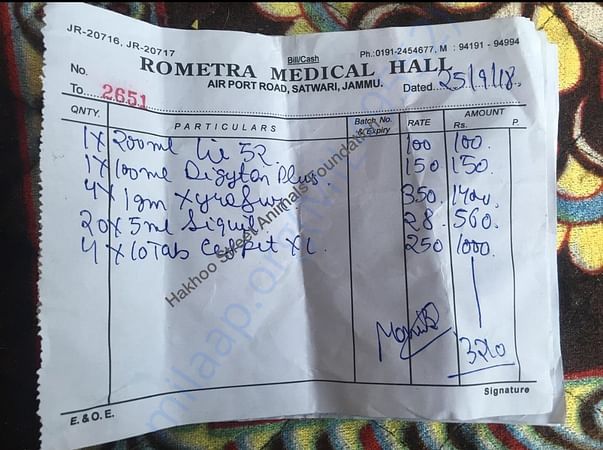 JR-20716, JR-20717
Bill/Cash
Ph.:0191-2454677, M : 94191 - 94994
ROMETRA MEDICAL HALL
AIR PORT ROAD, SATWARI, JAMMU.
No. 2651
To..... Dated..25/9/18.
QNTY. PARTICULARS Batch No. & Expiry RATE AMOUNT Rs. P.
1 X 200ml Liv 52 100 100.
1 X 100ml Digyton Plus 150 150.
4 X 1gm 350 1400.
20 X 5ml Siquil 28 560.
4 X 10 Tab XL 250 1000.
3210
Signature
E. & O. E.
Hakhoo Street Animals Foundation
milaap.org